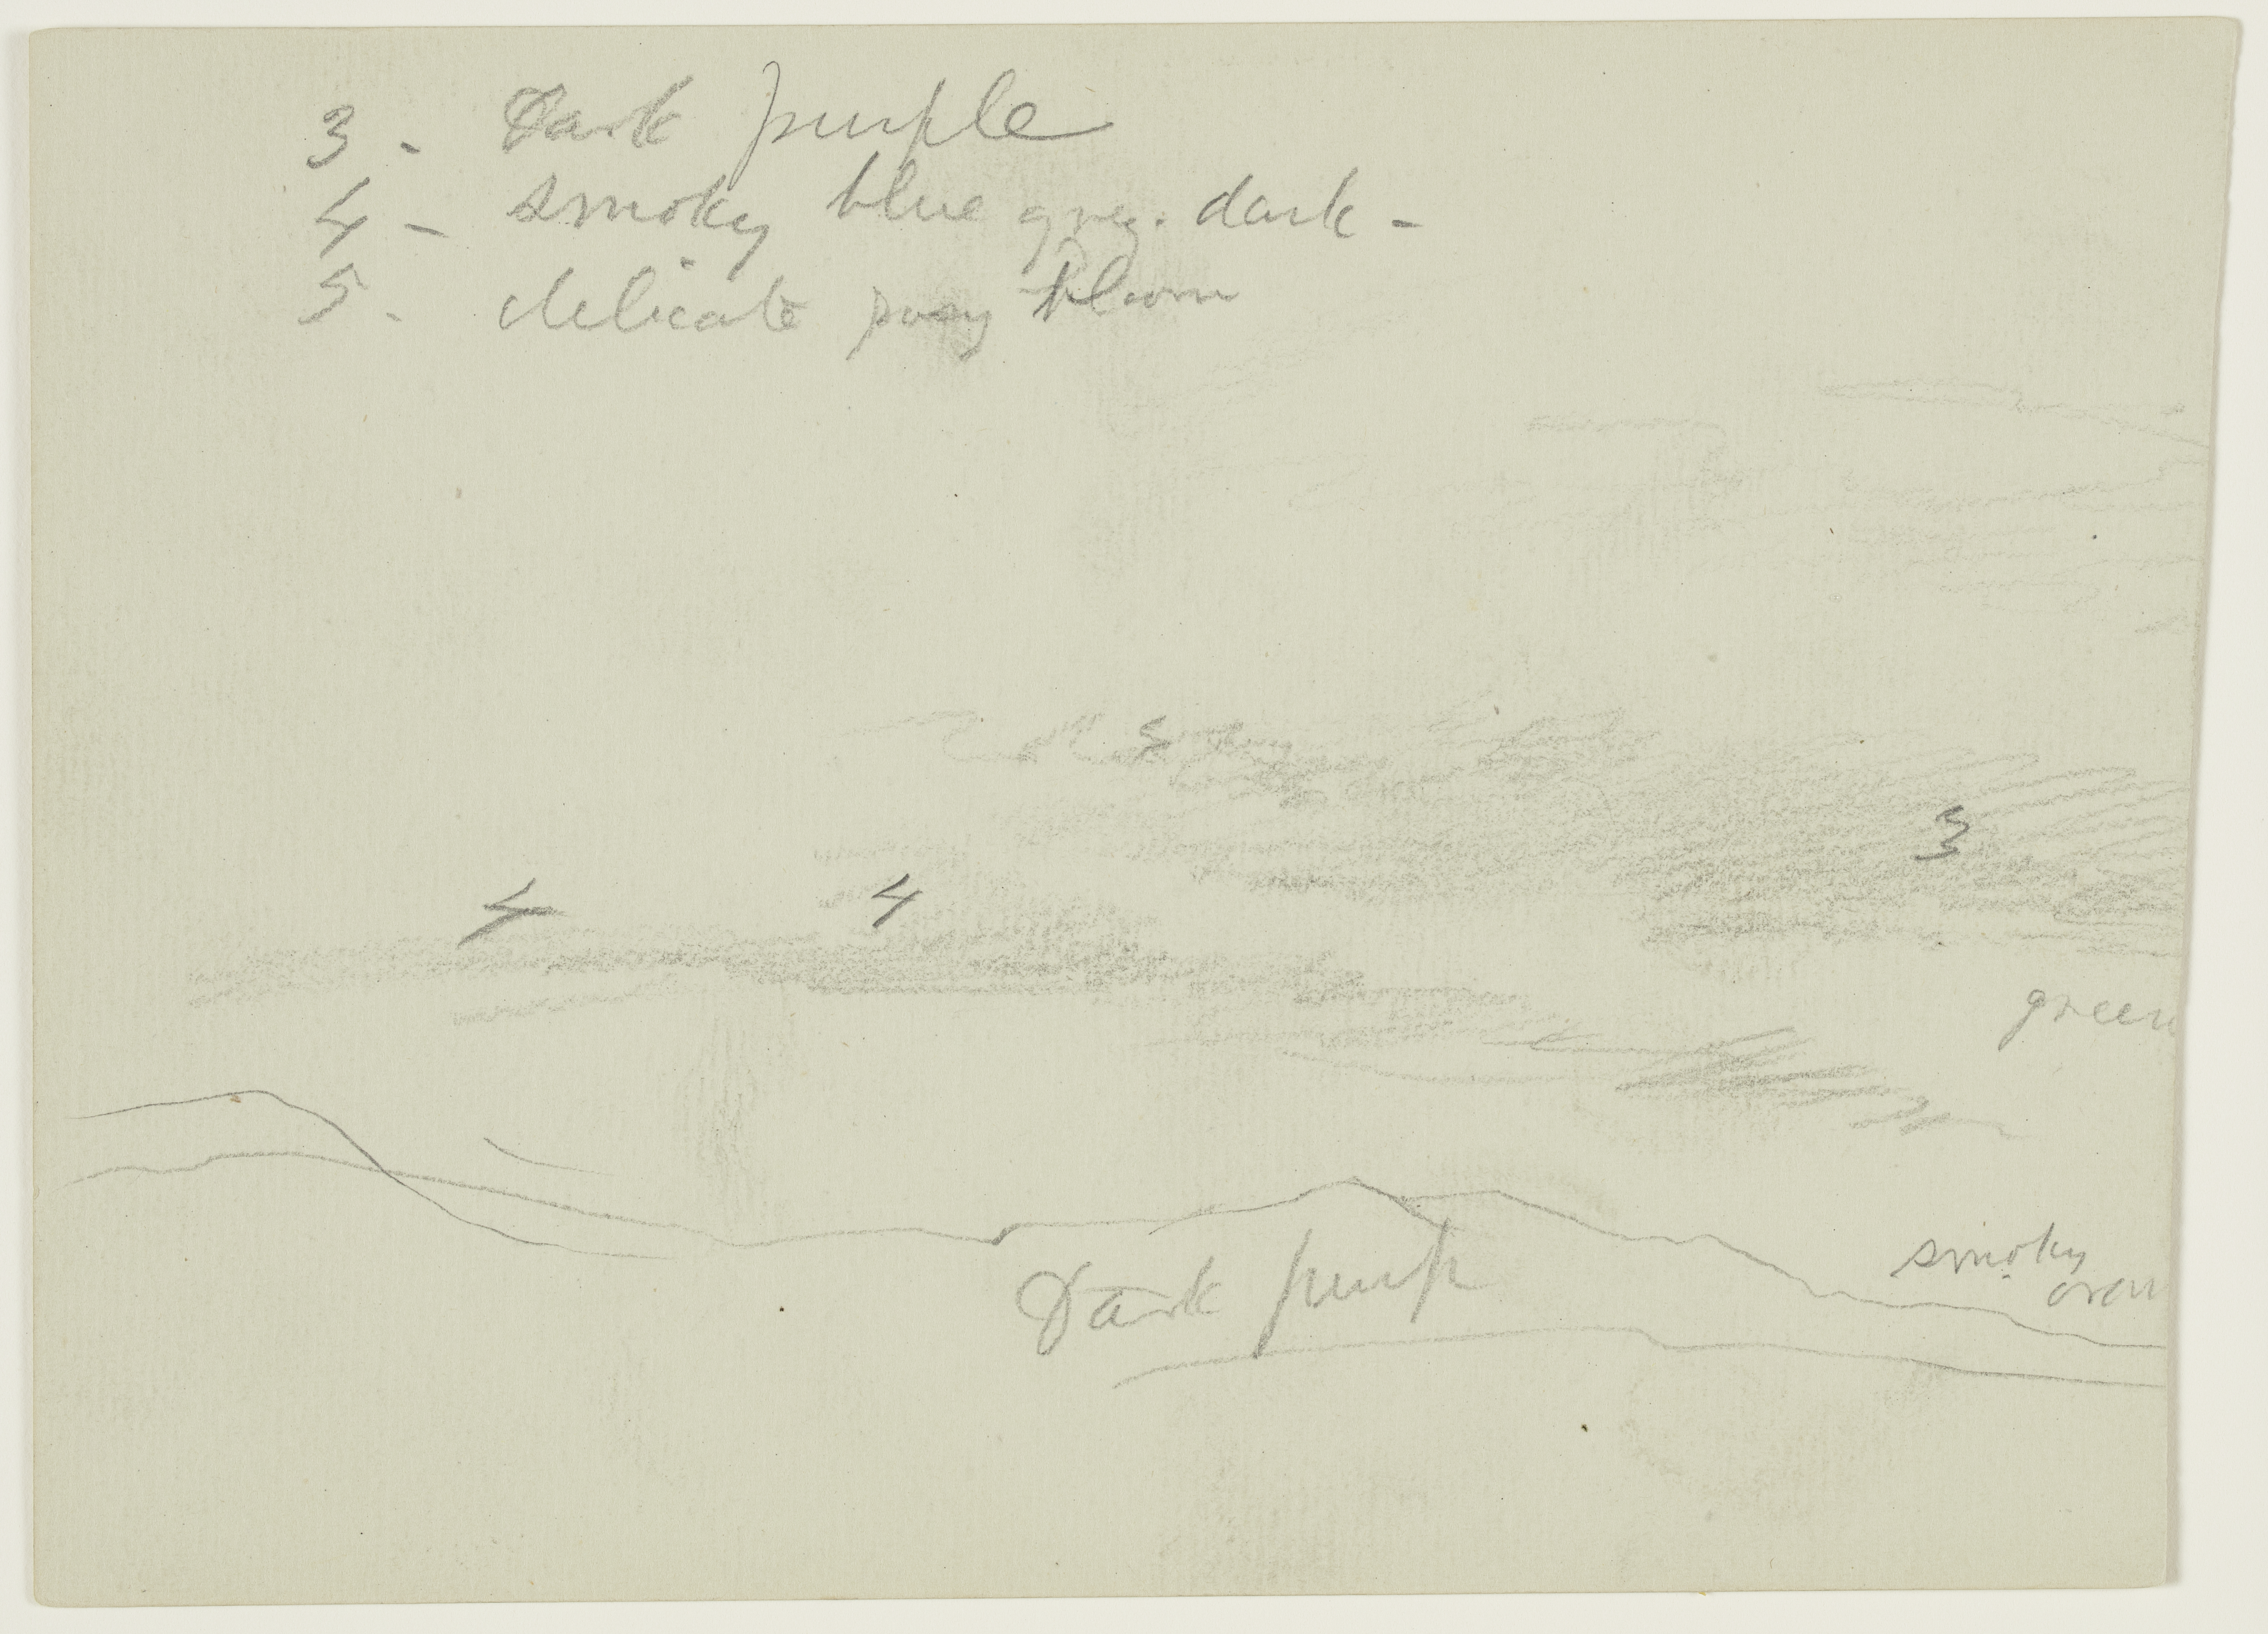 3 - Dark purple
4 - smoky blue grey. dark -
5 - delicate rosy bloom
5
3
4
4
green
Dark purp
smoky
oran